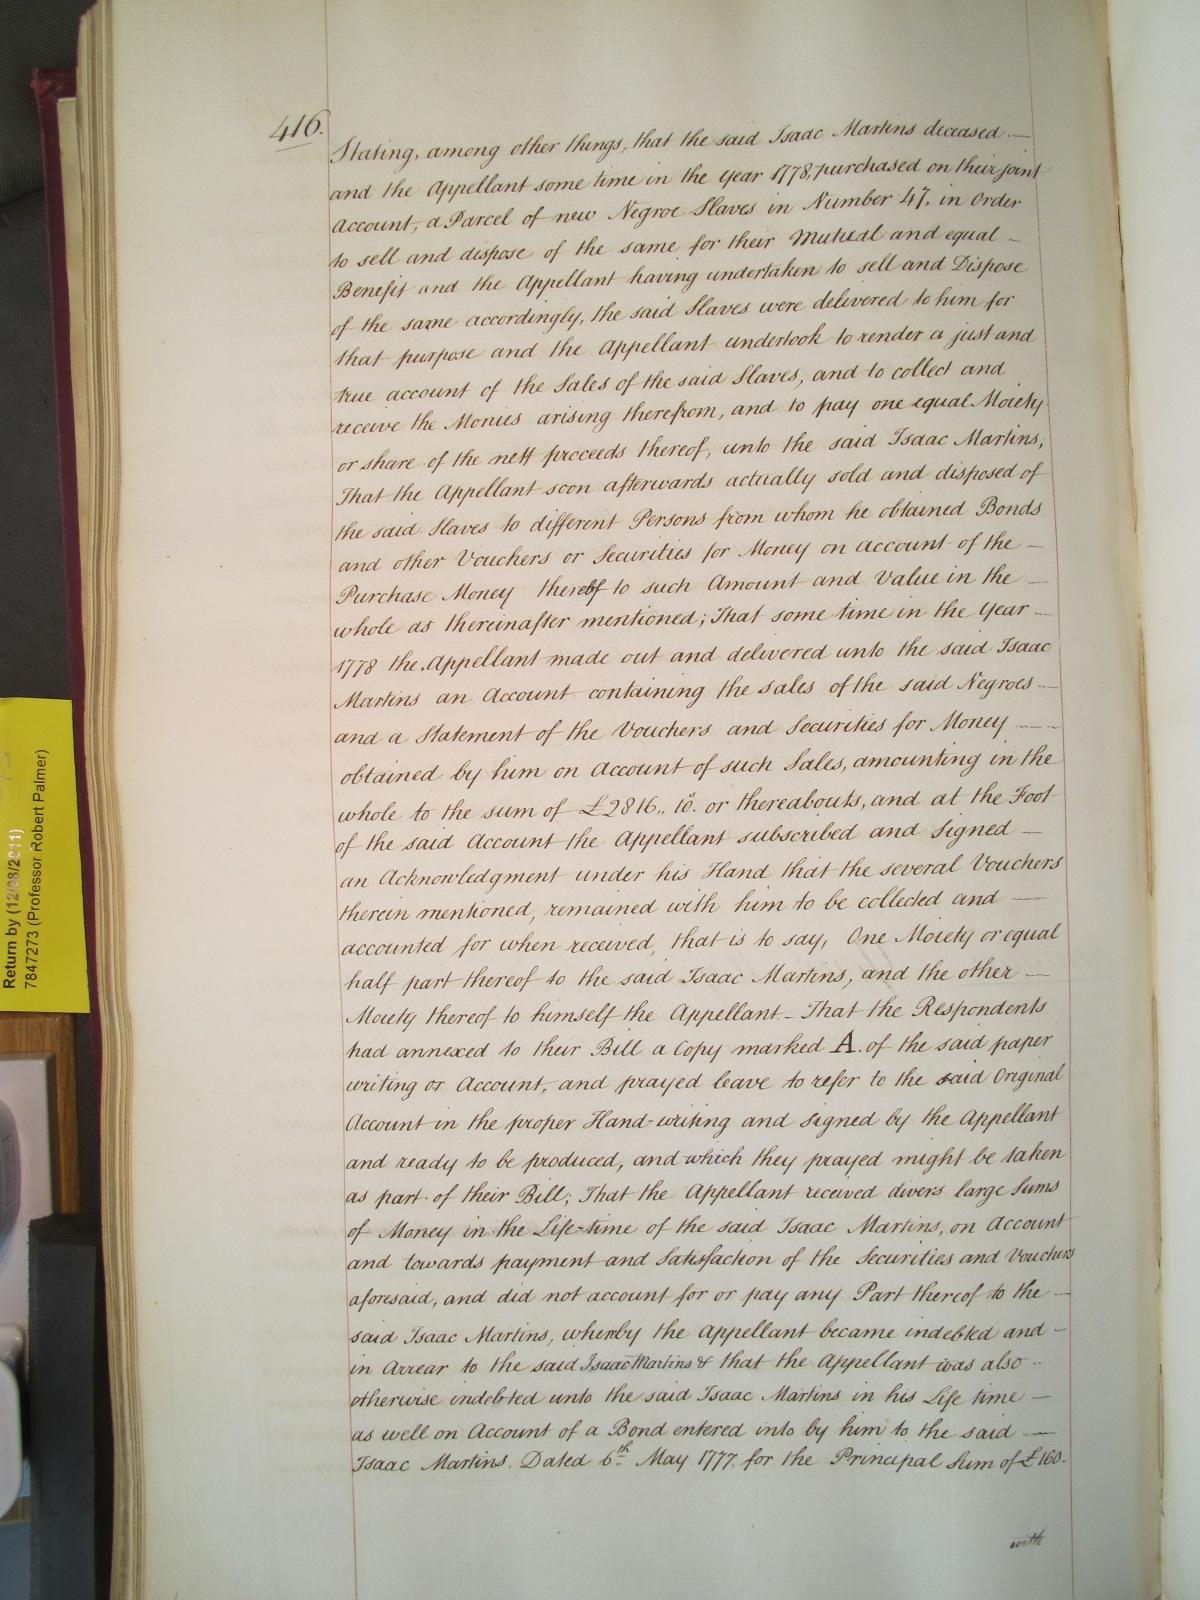 416.
Stating, among other things, that the said Isaac Martins deceased —
and the Appellant some time in the year 1778, purchased on their joint
Account, a Parcel of new Negroe Slaves in Number 47. in Order
to sell and dispose of the same for their Mutual and equal –
Benefit and the Appellant having undertaken to sell and Dispose
of the same accordingly, the said Slaves were delivered to him for
that purpose and the Appellant undertook to render a just and
true account of the Sales of the said Slaves, and to collect and
receive the Monies arising therefrom, and to pay one equal Moiety
or share of the nett proceeds thereof, unto the said Isaac Martins;
That the Appellant soon afterwards actually sold and disposed of
the said Slaves to different Persons from whom he obtained Bonds
and other Vouchers or Securities for Money on account of the —
Purchase Money thereof to such Amount and Value in the —
whole as thereinafter mentioned; That some time in the Year —
1778 the Appellant made out and delivered unto the said Isaac
Martins an Account containing the sales of the said Negroes —
and a Statement of the Vouchers and Securities for Money —
obtained by him on Account of such Sales, amounting in the
whole to the sum of £2816,, 10. or thereabouts, and at the Foot
of the said Account the Appellant subscribed and signed —
an Acknowledgment under his Hand that the several Vouchers
therein mentioned, remained with him to be collected and —
accounted for when received, that is to say, One Moiety or equal
half part thereof to the said Isaac Martins, and the other —
Moiety thereof to himself the Appellant – That the Respondents
had annexed to their Bill a Copy marked A. of the said paper
writing or Account, and prayed leave to refer to the said Original
Account in the proper Hand-writing and signed by the Appellant
and ready to be produced, and which they prayed might be taken
as part of their Bill; That the Appellant received divers large Sums
of Money in the Life-time of the said Isaac Martins, on Account
and towards payment and Satisfaction of the Securities and Vouchers
aforesaid, and did not account for or pay any Part thereof to the —
said Isaac Martins, whereby the Appellant became indebted and –
in Arrear to the said Isaac Martins & that the Appellant was also –
otherwise indebted unto the said Isaac Martins in his Life time —
as well on Account of a Bond entered into by him to the said —
Isaac Martins. Dated 6th May 1777. for the Principal Sum of £160.
with
Return by (12/08/2011)
7847273 (Professor Robert Palmer)